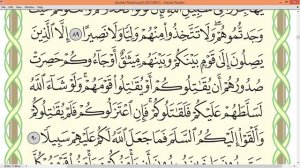 Mushaf Madinah.pdf (SECURED) - Adobe Reader
وَجَدتُّمُوهُمْ ۖ وَلَا تَتَّخِذُوا۟ مِنْهُمْ وَلِيًّا وَلَا نَصِيرًا ٨٩ إِلَّا ٱلَّذِينَ
يَصِلُونَ إِلَىٰ قَوْمٍۭ بَيْنَكُمْ وَبَيْنَهُم مِّيثَـٰقٌ أَوْ جَآءُوكُمْ حَصِرَتْ
صُدُورُهُمْ أَن يُقَـٰتِلُوكُمْ أَوْ يُقَـٰتِلُوا۟ قَوْمَهُمْ ۚ وَلَوْ شَآءَ ٱللَّهُ
لَسَلَّطَهُمْ عَلَيْكُمْ فَلَقَـٰتَلُوكُمْ ۚ فَإِنِ ٱعْتَزَلُوكُمْ فَلَمْ يُقَـٰتِلُوكُمْ
وَأَلْقَوْا۟ إِلَيْكُمُ ٱلسَّلَمَ فَمَا جَعَلَ ٱللَّهُ لَكُمْ عَلَيْهِمْ سَبِيلًا ٩٠